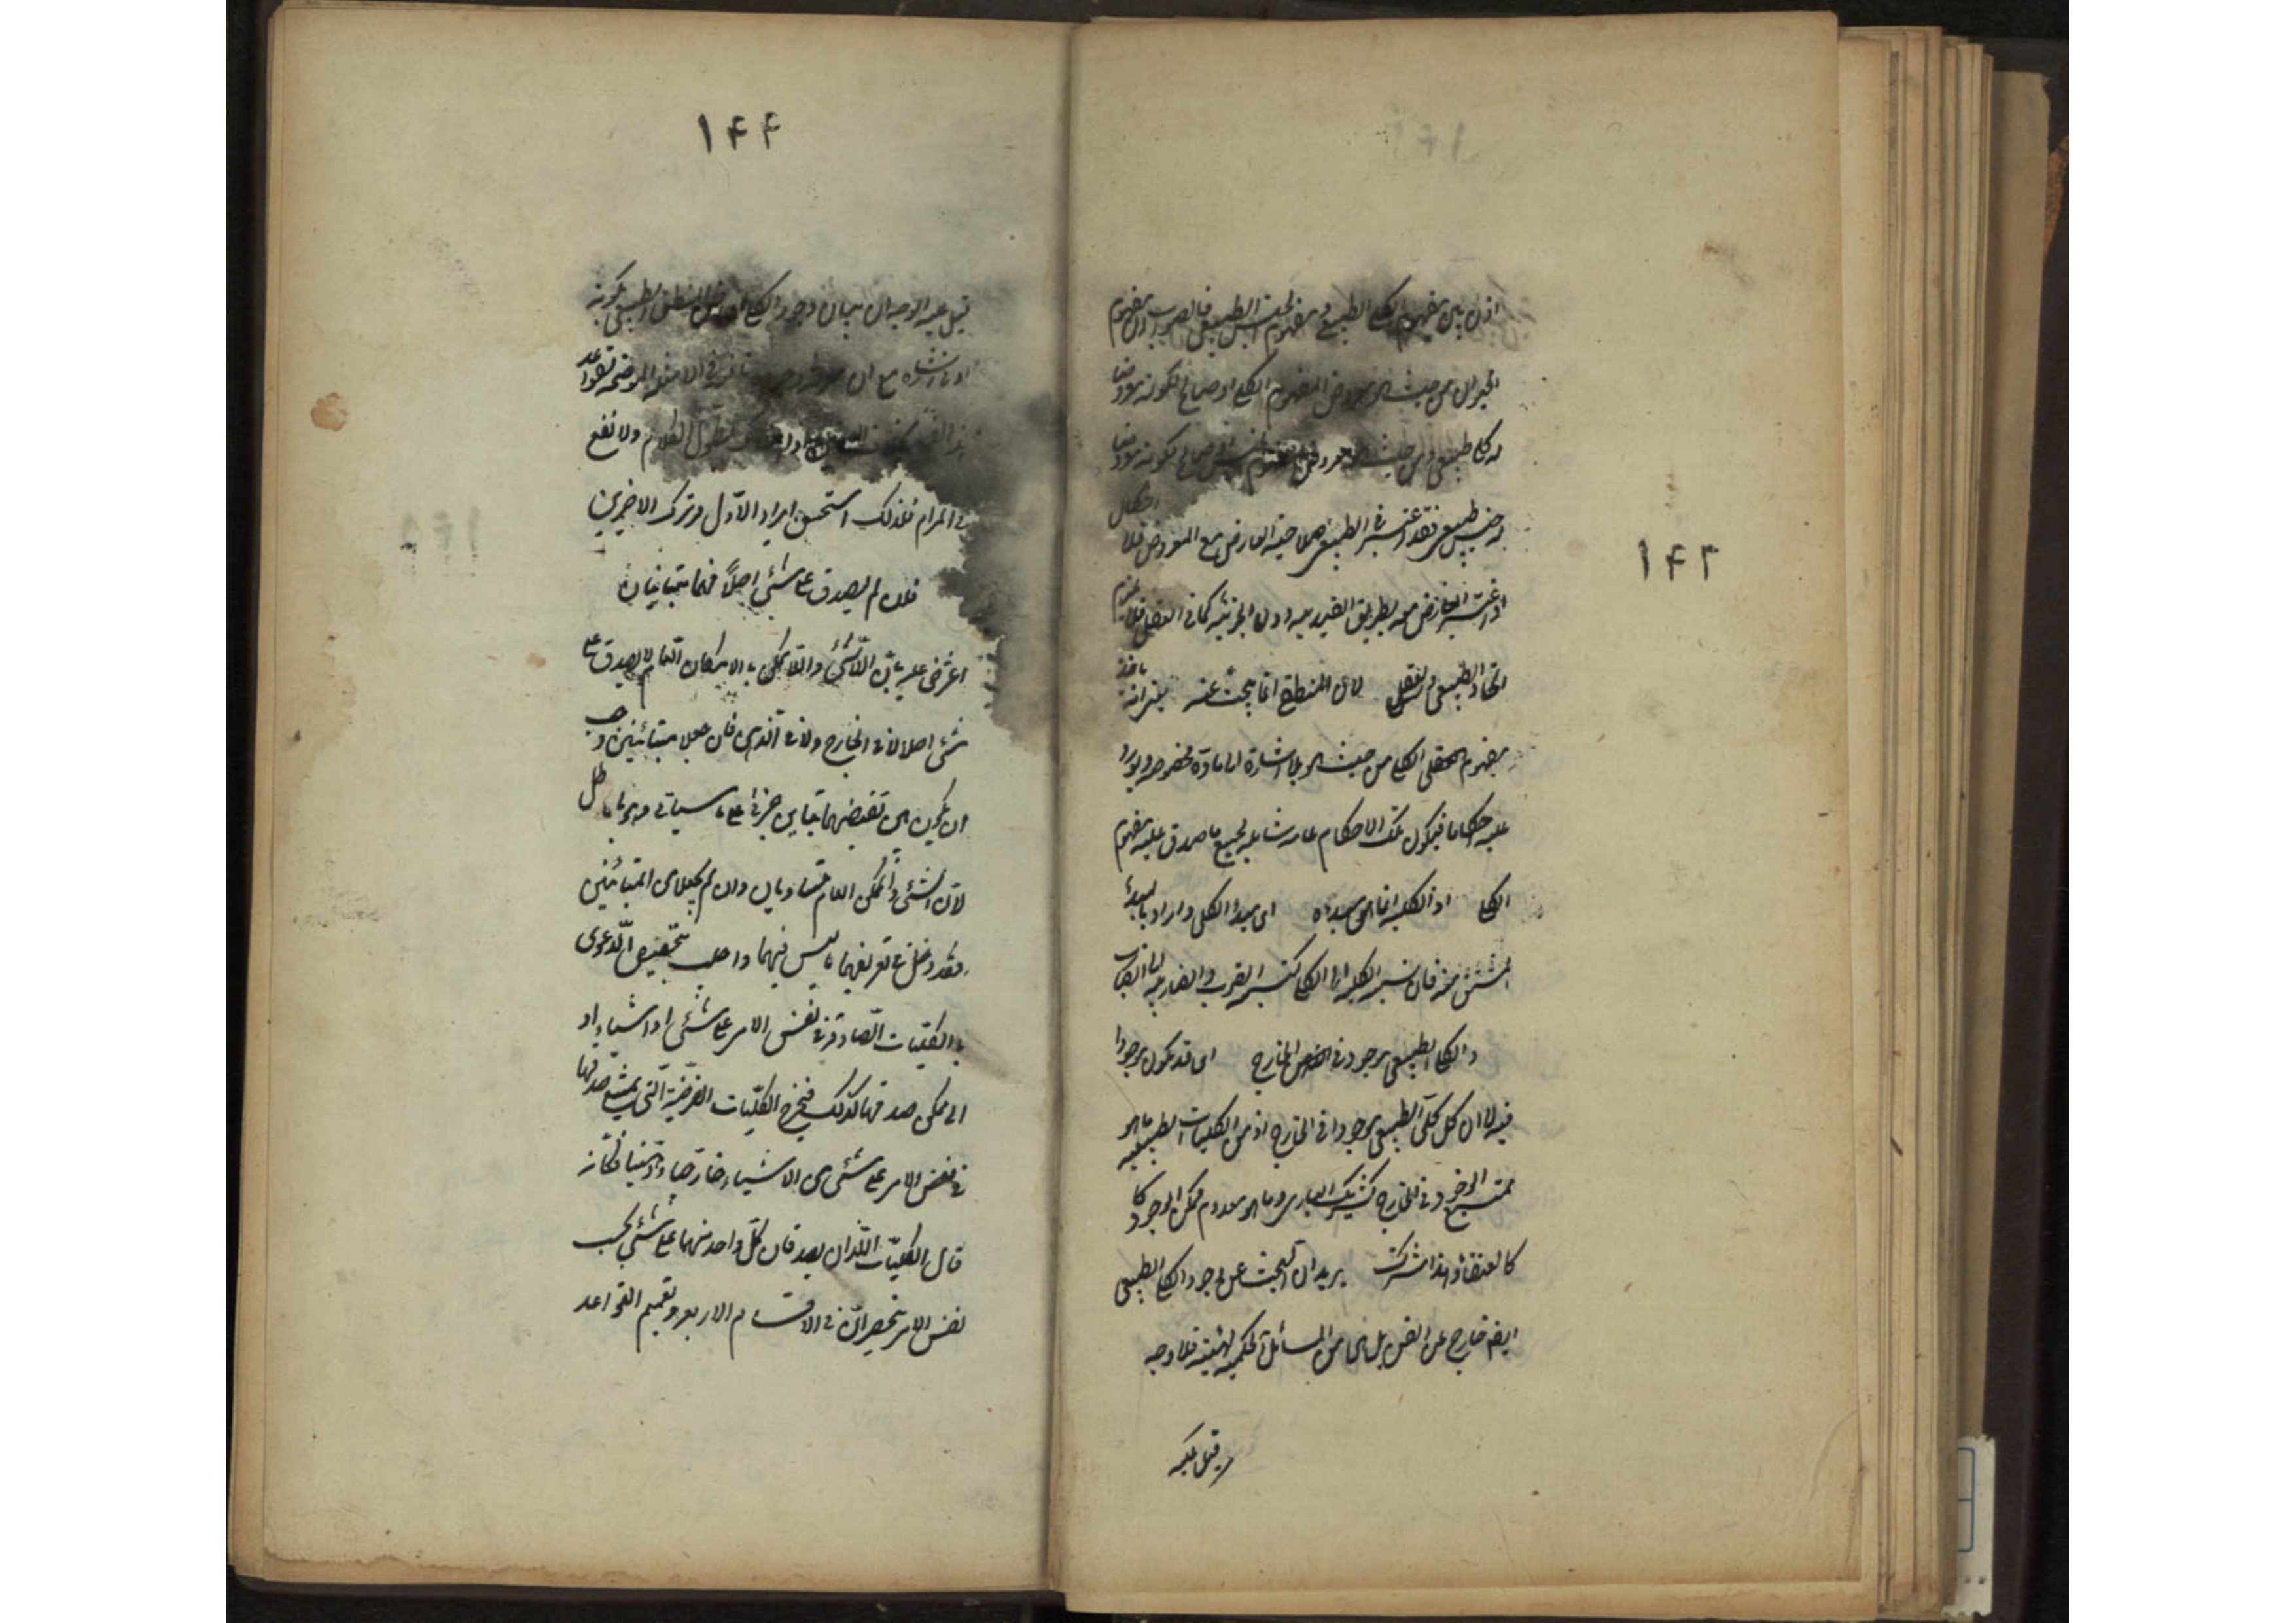 ۱۴۳
اذن بين مفهوم الكلي الطبيعي ومفهوم الجنس الطبيعي فالصواب ان مفهوم
الحيوان من حيث هو معروض لمفهوم الكلي او صالح لكونه معروضا
له كلي طبيعي ومن حيث هو معروض لمفهوم الجنس او صالح لكونه معروضا
له جنس طبيعي فقد اعتبر في الطبيعي صلاحية العارض مع المعروض فلا اشكال
اذ اعتبر العارض معه بطريق القيدية دون الجزئية كما في العقلي فلا يلزم
اتحاد الطبيعي والعقلي لان المنطقي انما يبحث عنه يعني انه ياخذ
مفهوم الكلي من حيث هو بلا اشارة الى مادة مخصوصة ويورد
عليه احكاما فيكون تلك الاحكام عامة شاملة لجميع ما صدق عليه مفهوم
الكلي اذ الكلية انما هي مبدؤه اى مبدأ الكلي واراد بالمبدأ
المشتق منه فان نسبة الكلية الى الكلي كنسبة الضرب والضاربية الى الضارب
والكلي الطبيعي موجود في الخارج اى قد يكون موجودا
فيه لا ان كل كلي طبيعي موجود في الخارج اذ من الكليات الطبيعية ما هو
ممتنع الوجود في الخارج كشريك الباري وما هو معدوم ممكن الوجود
كالعنقاء وهذا مشترك يريد ان البحث عن وجود الكلي الطبيعي
ايضا خارج عن الفن بل هى من المسائل الحكمية الهية فلا وجه
قيل عليه
۱۴۴
قيل عليه الوجه ان بيان وجود الكلي الطبيعي
مع ان
الكلام ولا نفع
في المرام فلذلك استحسن ايراد الاوّل وترك الاخيرين
فلان لم يصدق على شئ اصلاً فهما متباينان
اعترض عليه بانّ اللاشئ واللاممكن بالامكان العام لا يصدق على
شئ اصلا لا في الخارج ولا في الذهن فان جعلا متباينين وجب
ان يكون بين نقيضيهما تباين جزئي على ما سياتي وهو باطل
لانّ الشئ والممكن العام متساويان وان لم يجعلا من المتباينين
فقد دخل في تعريفهما ما ليس فيهما واجيب بتخصيص الدّعوى
بالكليّات الصّادقة في نفس الامر على شئ او اشياء او
التى يمكن صدقها كذلك فيخرج الكليّات الفرضيّة الّتى يمتنع صدقها
في نفس الامر على شئ من الاشياء خارجا وذهنا فكانه
قال الكليّان اللّذان يصدقان كلّ واحد منهما على شئ بحسب
نفس الامر ينحصران في الاقسام الاربع وتعميم القواعد